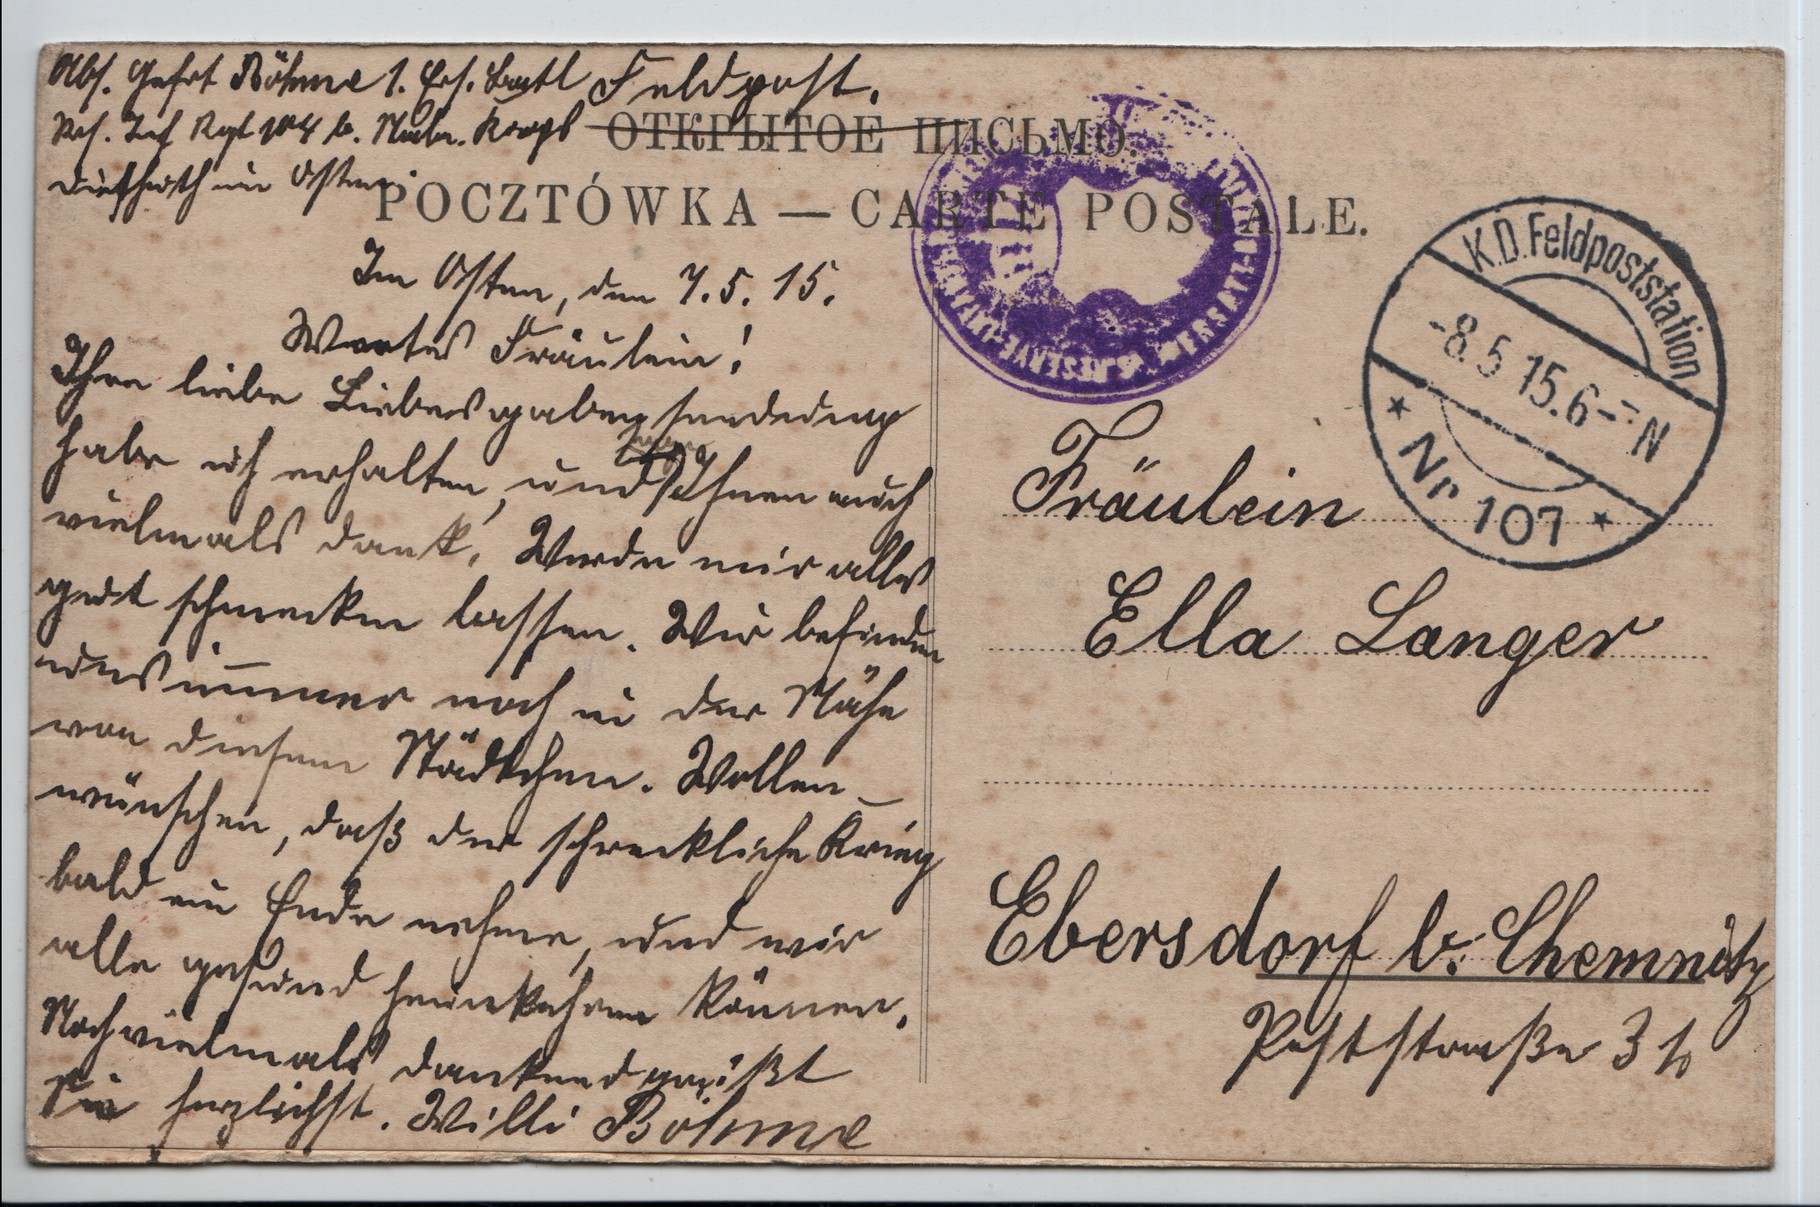 Abs. Gefrt Böhme 1. Ers. Batl Feldpost.
Res. Inf Rgt 104 b. Korps
im Osten.
ОТКРЫТОЕ ПИСЬМО.
POCZTÓWKA — CARTE POSTALE.
Im Osten, den 7.5.15.
Wertes Fräulein!
Ihre liebe Liebesgabensendung
habe ich erhalten, und Ihnen auch
vielmals dank. Werde mir alles
gut schmecken lassen. Wir befinden
uns immer noch in der Nähe
von diesem Städtchen. Wollen
wünschen, daß der schreckliche Krieg
bald ein Ende nehme, und wir
alle gesund heimkehren können.
Noch vielmals dankend grüßt
Sie herzlichst. Willi Böhme
K.D. Feldpoststation
-8.5 15.6-7N
* Nr 107 *
Fräulein
Ella Langer
Ebersdorf b. Chemnitz
Poststraße 3